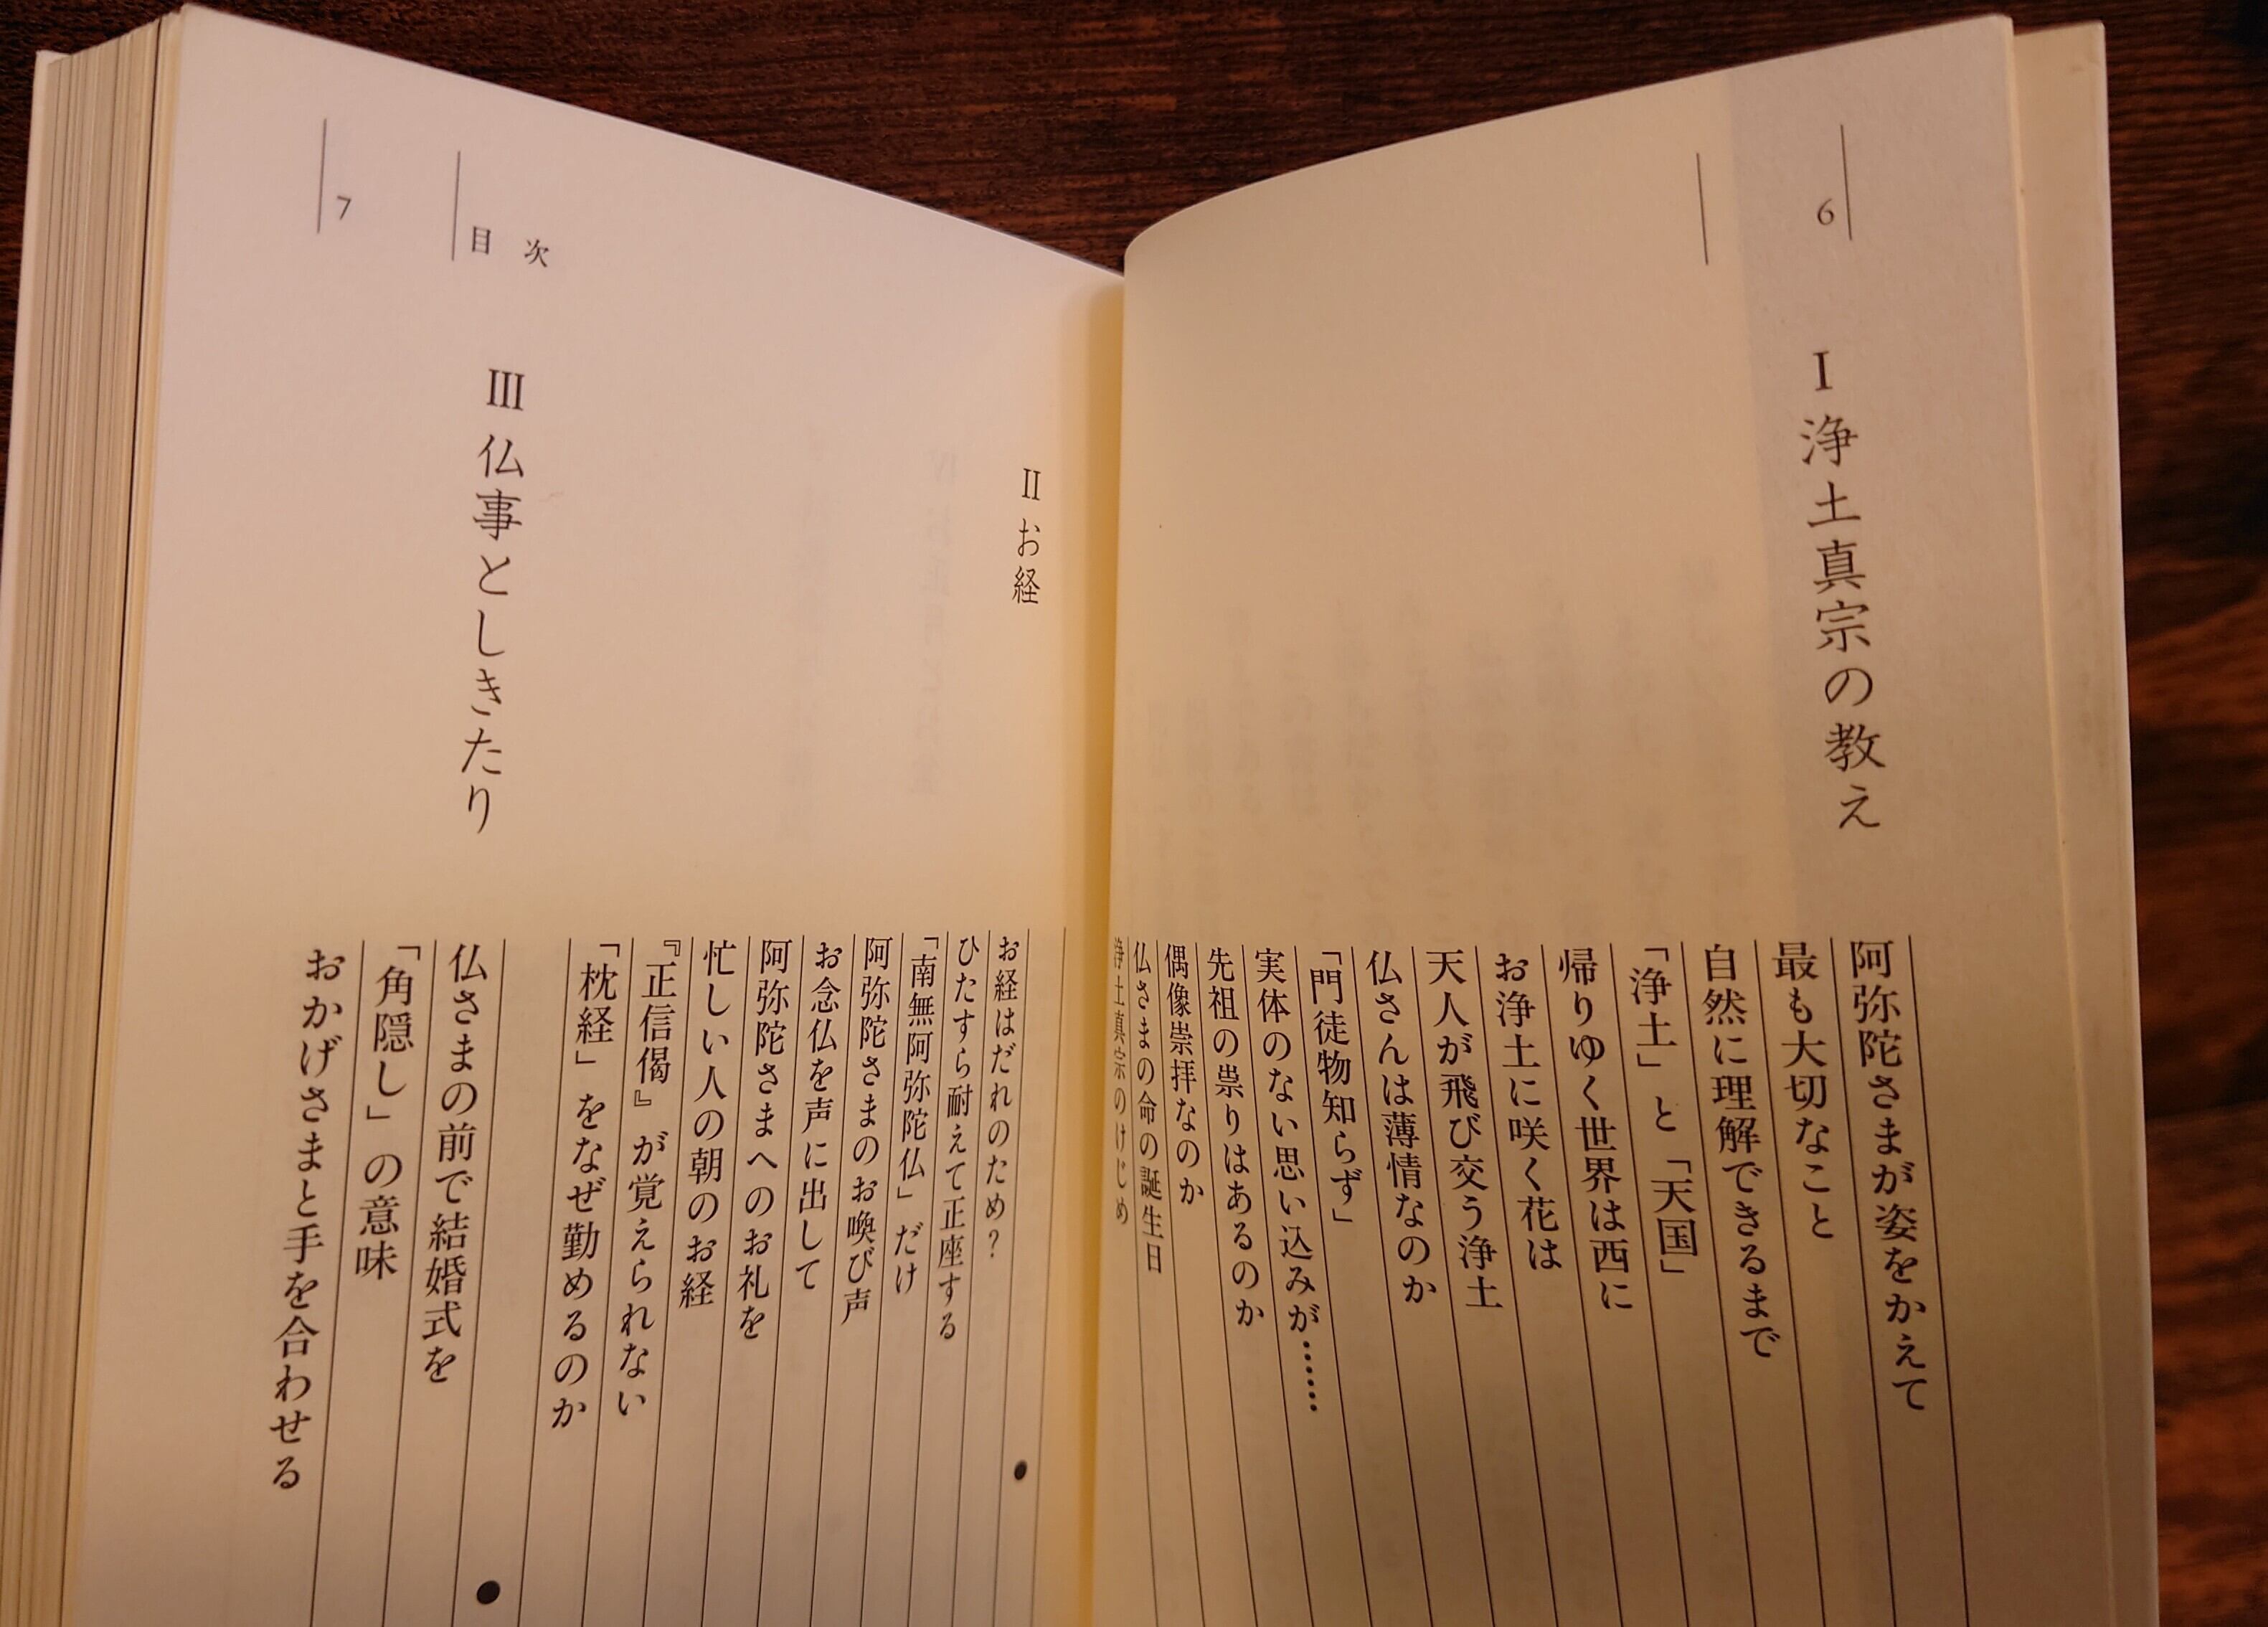 6
I 浄土真宗の教え
阿弥陀さまが姿をかえて
最も大切なこと
自然に理解できるまで
「浄土」と「天国」
帰りゆく世界は西に
お浄土に咲く花は
天人が飛び交う浄土
仏さんは薄情なのか
「門徒物知らず」
実体のない思い込みが……
先祖の祟りはあるのか
偶像崇拝なのか
仏さまの命の誕生日
浄土真宗のけじめ
II お経
お経はだれのため？
ひたすら耐えて正座する
「南無阿弥陀仏」だけ
阿弥陀さまのお喚び声
お念仏を声に出して
阿弥陀さまへのお礼を
忙しい人の朝のお経
『正信偈』が覚えられない
「枕経」をなぜ勤めるのか
III 仏事としきたり
仏さまの前で結婚式を
「角隠し」の意味
おかげさまと手を合わせる
目次
7